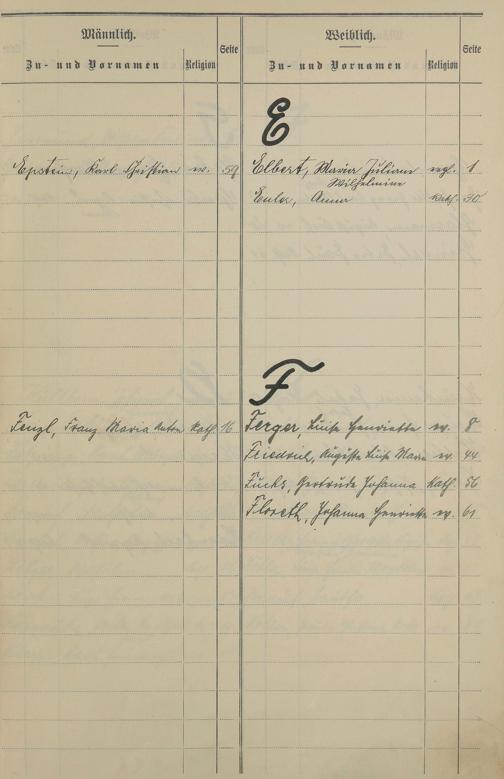 Männlich.
Zu- und Vornamen Religion Seite
Weiblich.
Zu- und Vornamen Religion Seite
E
Epstein, Karl Christian ev. 59
Elbert, Maria Juliane evgl. 1
Wilhelmine
Euler, Anna kath. 30
F
Fenzl, Franz Maria Anton Kath. 16
Ferger, Luise Henriette ev. 8
Auguste Luise Marie ev. 44
Fuchs, Gertrude Johanna Kath. 56
Floreth, Johanna Henriette ev. 61